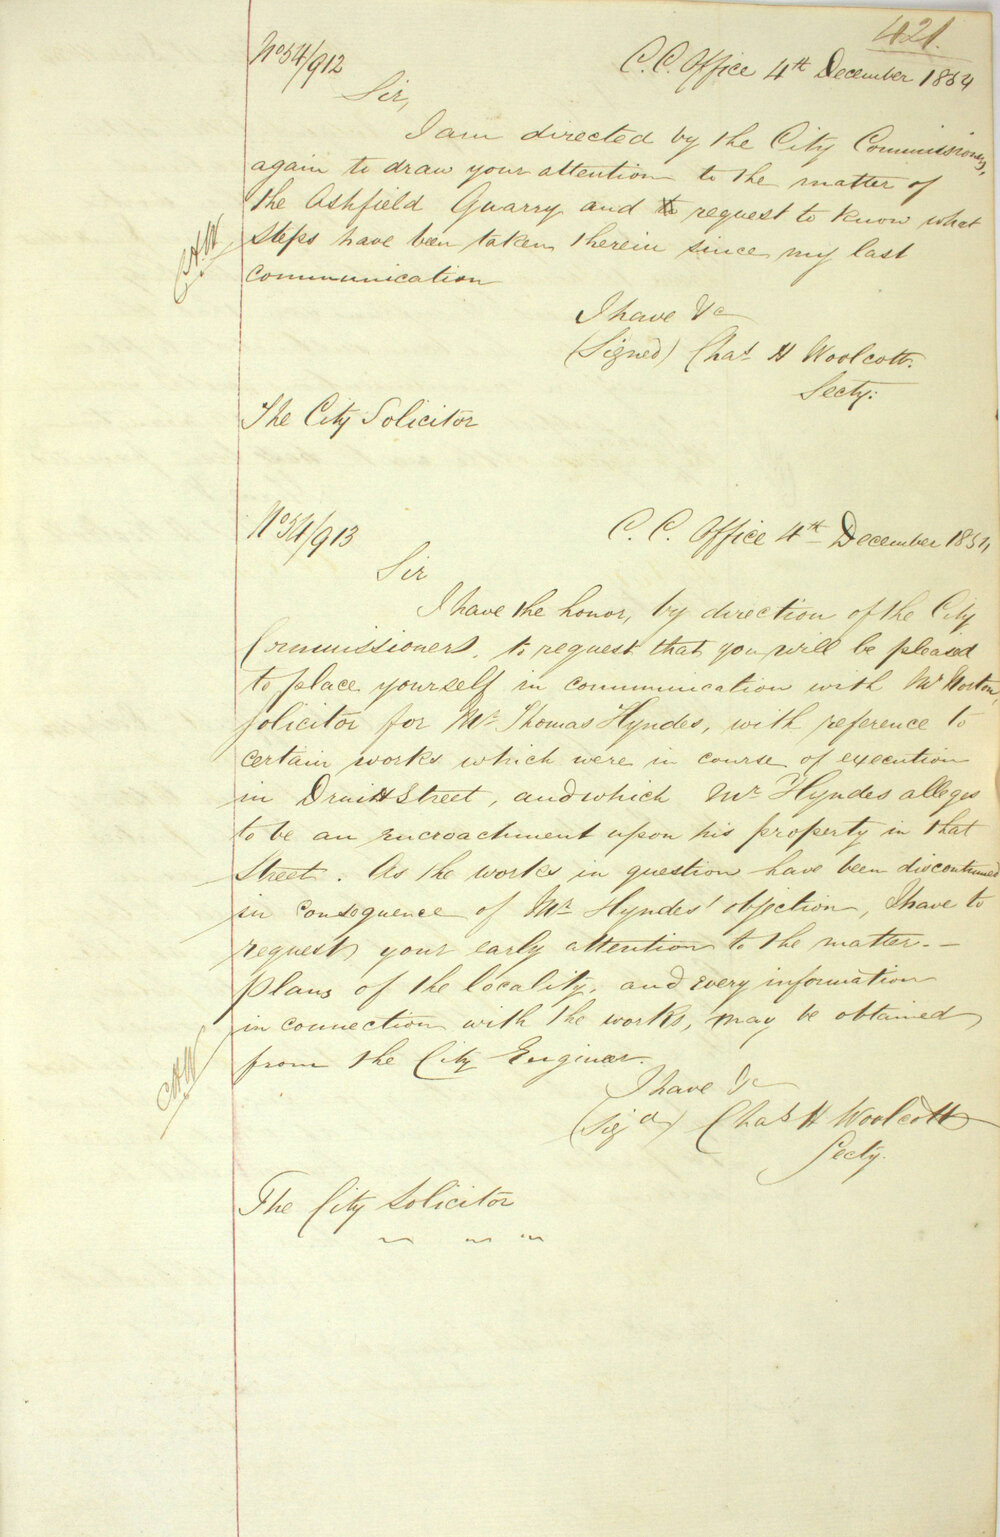 421.
No 54/912
C. C. Office 4th December 1854
Sir,
I am directed by the City Commissioners,
again to draw your attention to the matter of
the Ashfield Quarry and to request to know what
steps have been taken therein since my last
communication
CHW
I have &c
(Signed) Chas H Woolcott.
Secty:
The City Solicitor
No 54/913
C. C. Office 4th December 1854
Sir
I have the honor, by direction of the City
Commissioners, to request that you will be pleased
to place yourself in communication with Mr Norton,
solicitor for Mr Thomas Hyndes, with reference to
certain works which were in course of execution
in Druitt Street, and which Mr Hyndes alleges
to be an encroachment upon his property in that
Street. As the works in question have been discontinued
in consequence of Mr Hyndes' objection, I have to
request your early attention to the matter. —
Plans of the locality, and every information
in connection with the works, may be obtained
from the City Engineer.
CHW
I have &c
(Sigd) Chas H Woolcott
Secty.
The City Solicitor